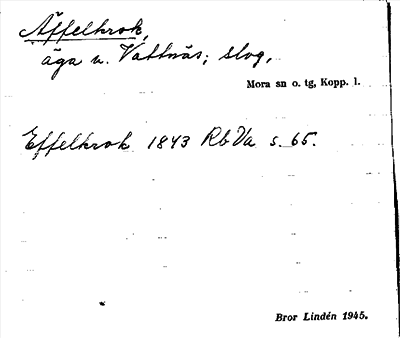 Äffelkrok,
äga u. Vattnäs; slog.
Mora sn o. tg, Kopp. l.
Effelkrok 1843 Rb Va s. 65.
Bror Lindén 1945.